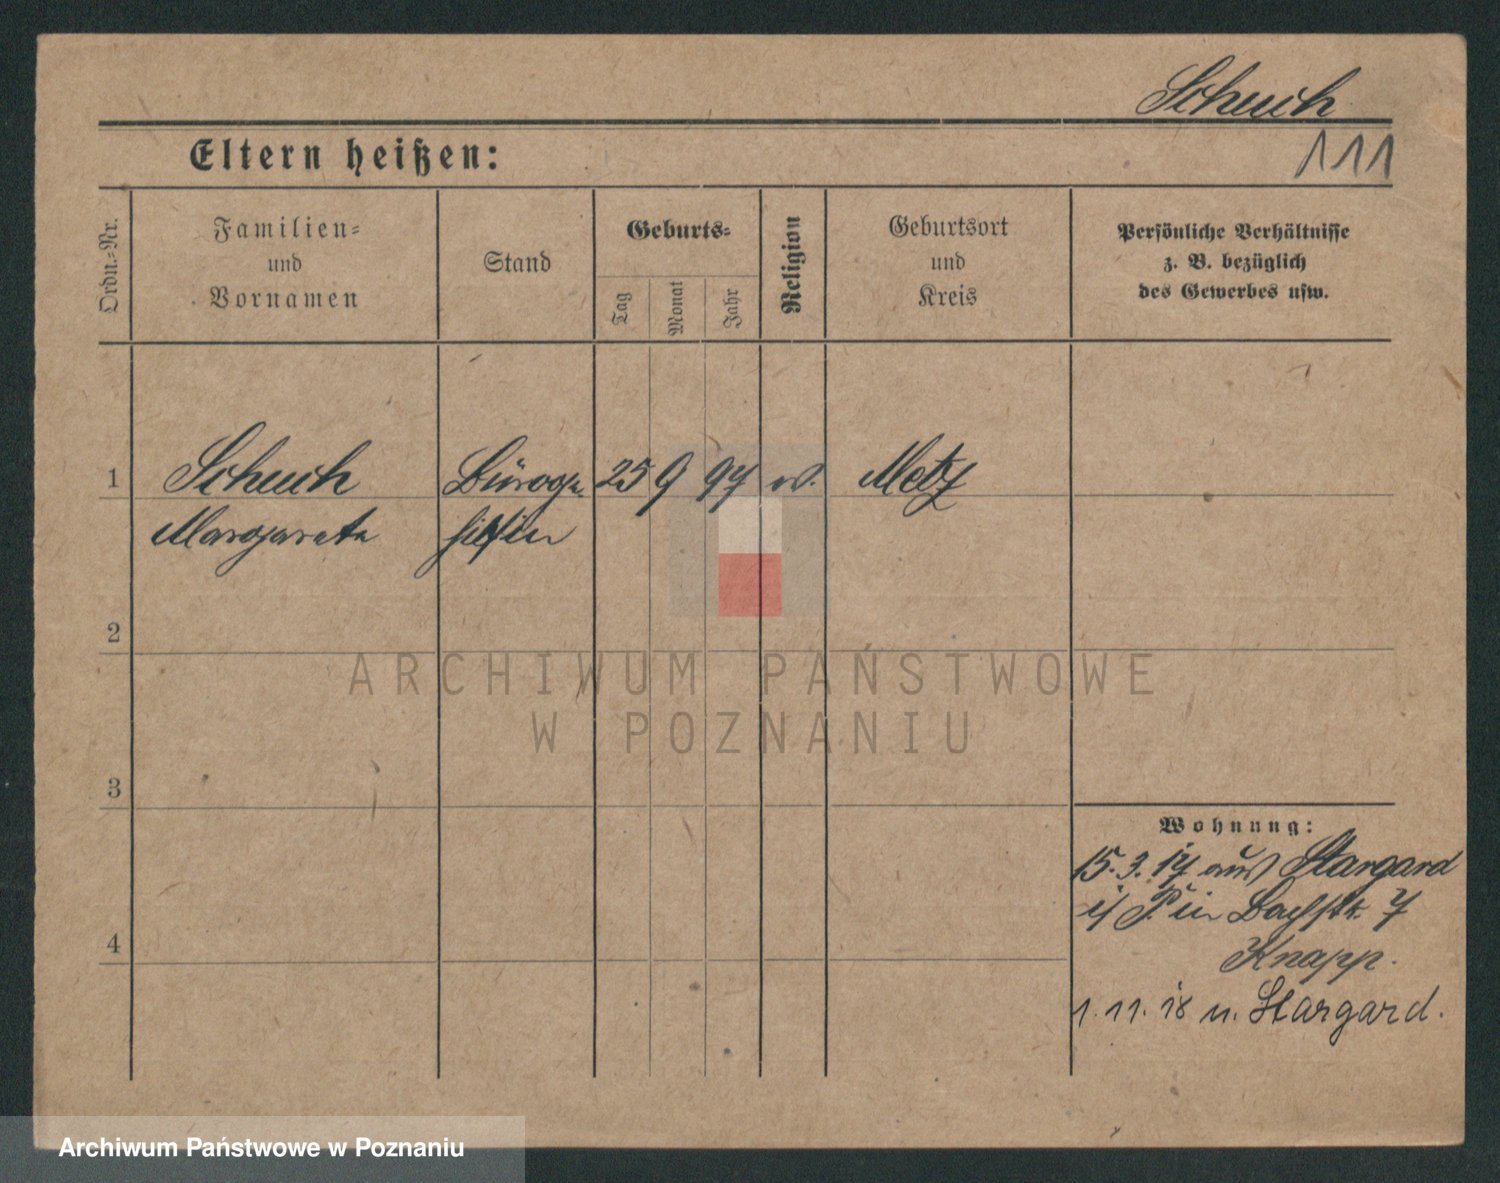 Schuch
111
Eltern heißen:
Ordn.-Nr.
Familien-
und
Vornamen
Stand
Geburts-
Tag
Monat
Jahr
Religion
Geburtsort
und
Kreis
Persönliche Verhältnisse
z. B. bezüglich
des Gewerbes usw.
1 Schuch Büroge- 25 9 97 Metz
Margarete hilfin
2
ARCHIWUM PAŃSTWOWE
W POZNANIU
3
Wohnung:
15.3.17 aus Stargard
in 7
4
Knapp.
1.11.18 n. Stargard.
Archiwum Państwowe w Poznaniu